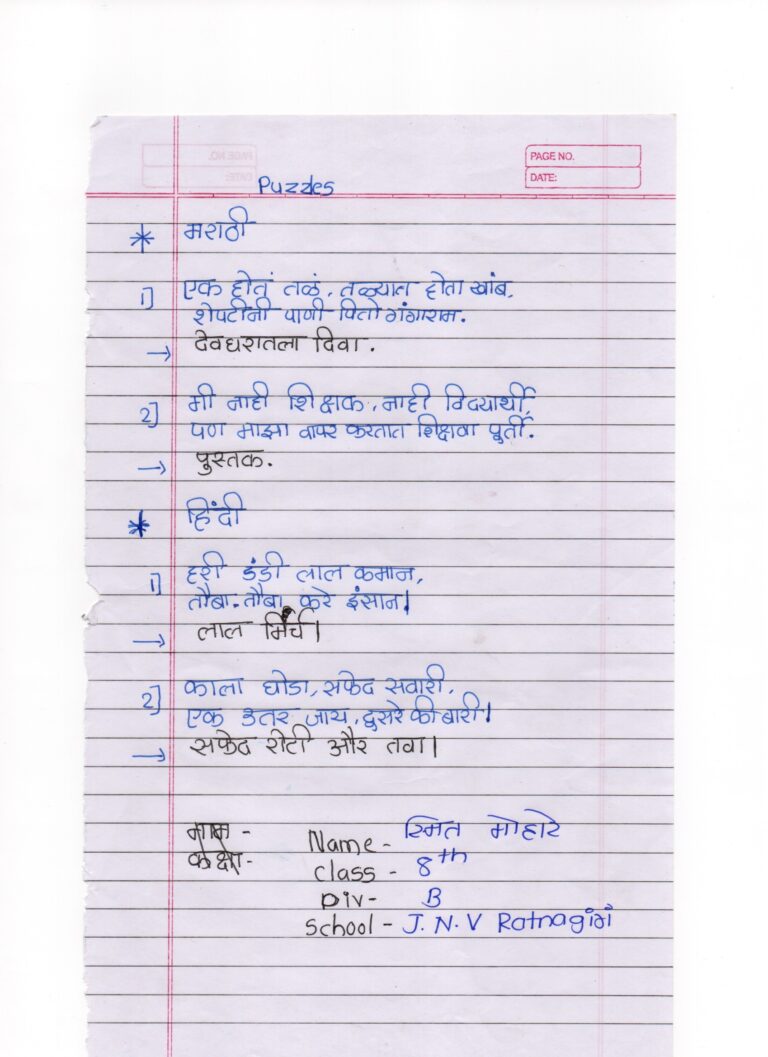 PAGE NO.
DATE:
Puzzles
* मराठी
1] एक होतं तळं, तळ्यात होता खांब,
शेपटीनी पाणी पितो गंगाराम.
→ देवघरातला दिवा.
2] मी नाही शिक्षक, नाही विदयार्थी,
पण माझा वापर करतात शिक्षका पुर्ती.
→ पुस्तक.
* हिंदी
1] हरी डंडी लाल कमान,
तौबा-तौबा करे इंसान।
→ लाल मिर्च।
2] काला घोडा, सफेद सवारी,
एक उतर जाय, दुसरे की बारी।
→ सफेद रोटी और तवा।
नाम - Name - स्मित मोहारे
कक्षा - Class - 8th
Div - B
School - J. N. V Ratnagiri